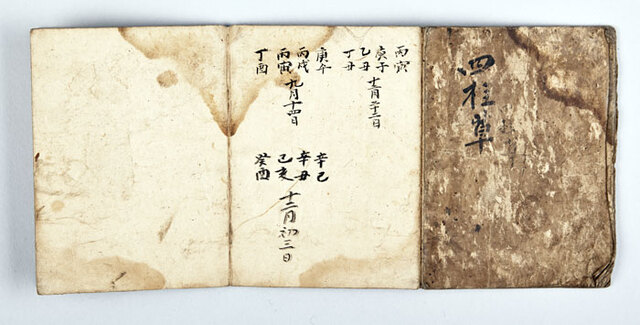 四柱草
丙寅
庚子
乙丑 十一月二十二日
丁丑
庚午
丙戌
丙寅 九月十四日
丁酉
辛巳
辛丑
己亥 十二月初三日
癸酉